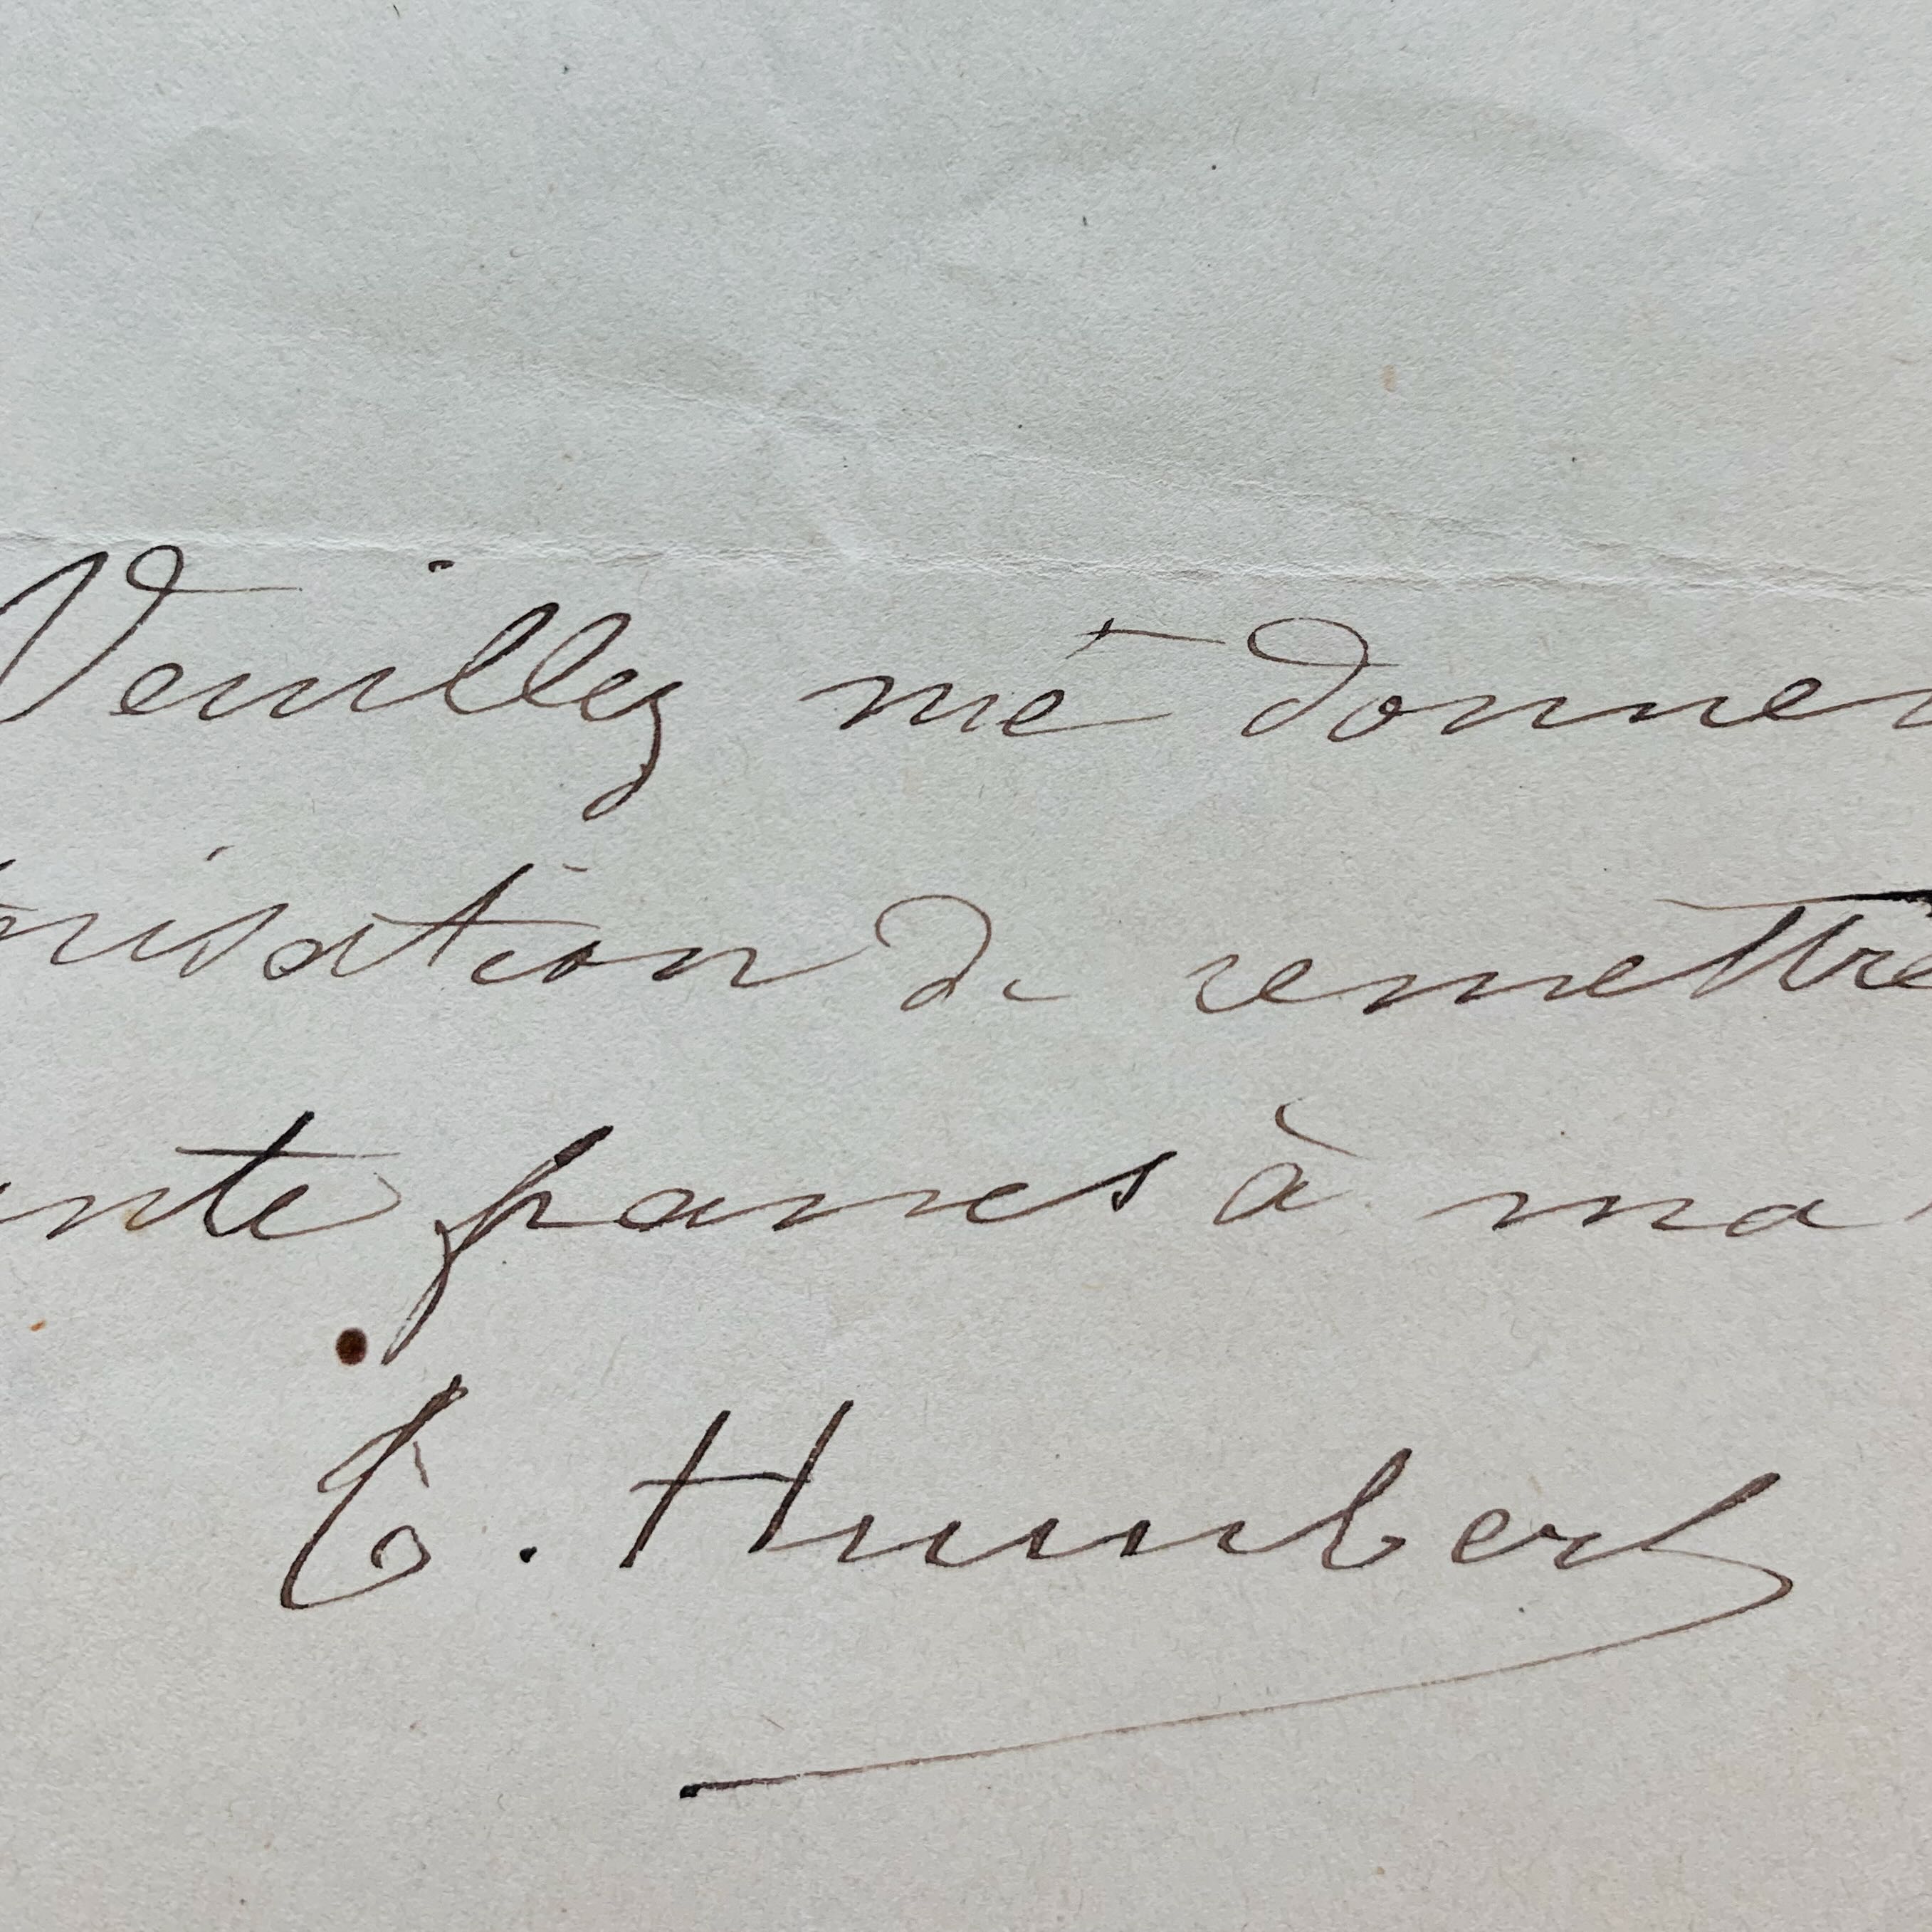 Veuillez me donner
orisation de remettre
ante francs à ma
T. Humbert